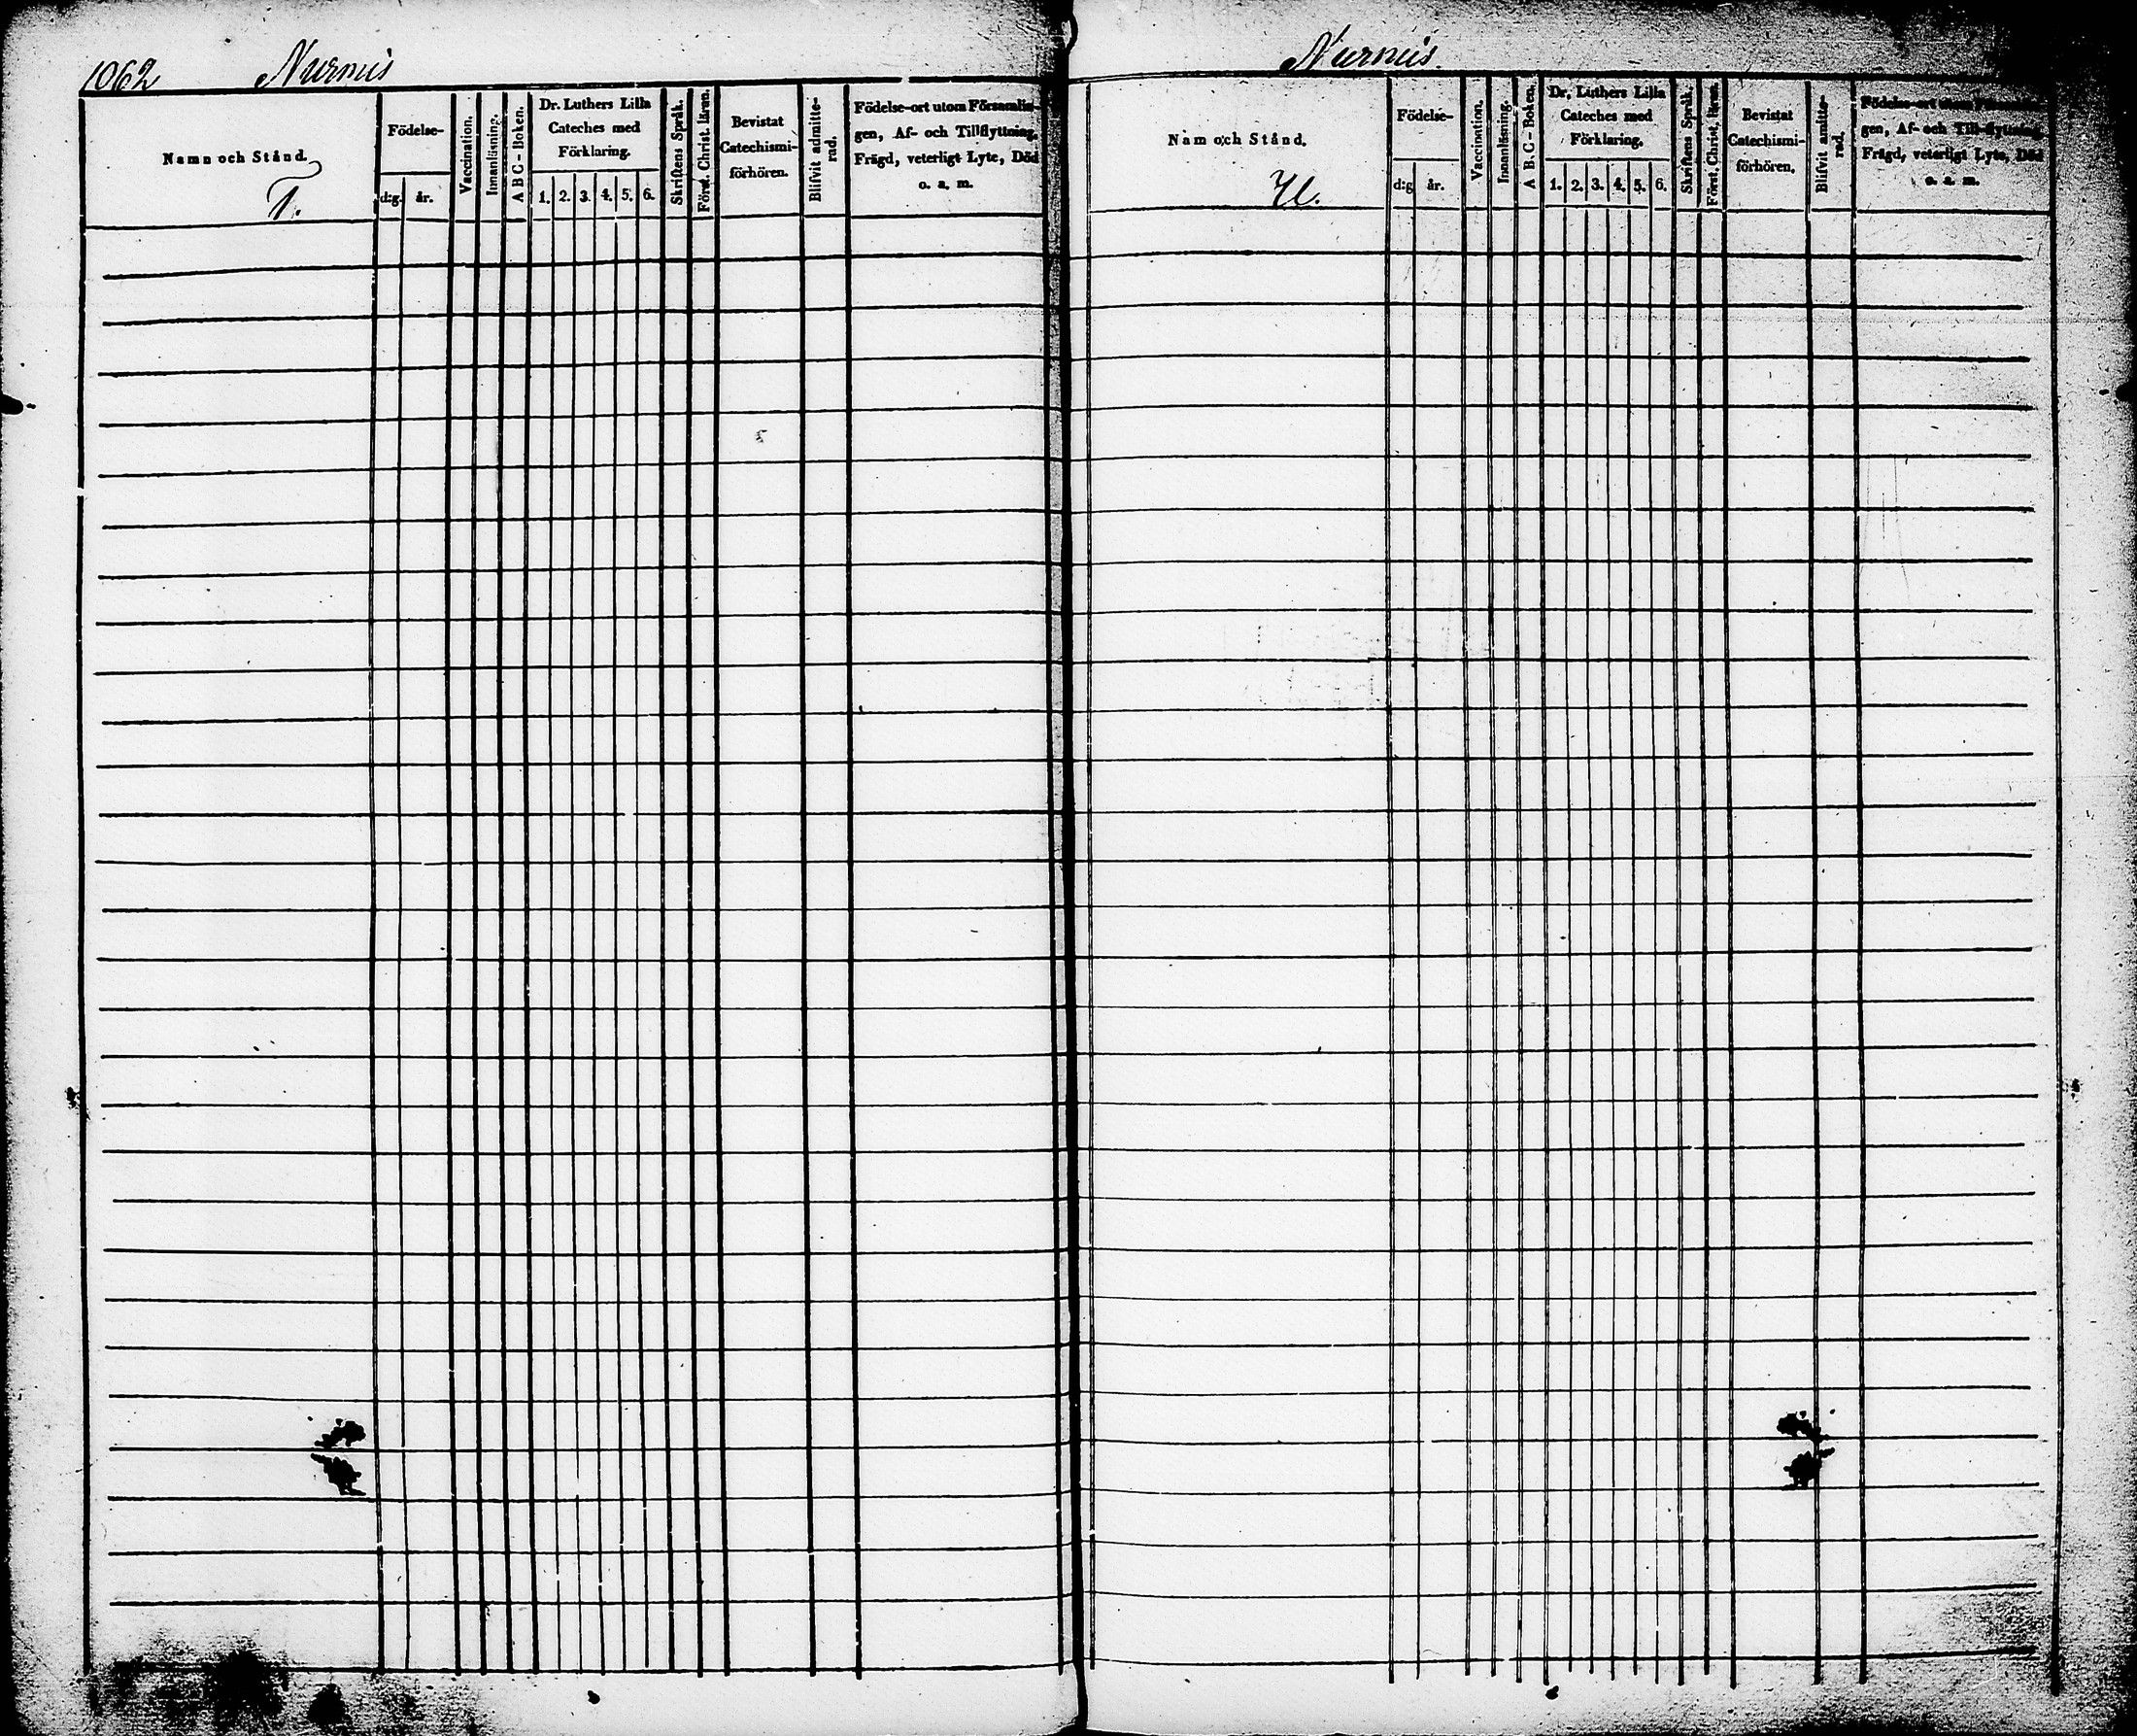 1062 Nurmis
Namn och Stånd.
T.
Födelse-
d:g. år.
Vaccination.
Innanläsning.
A B C - Boken.
Dr. Luthers Lilla
Cateches med
Förklaring.
1. 2. 3. 4. 5. 6.
Skriftens Språk.
Först. Christ. läran.
Bevistat
Catechismi-
förhören.
Blifvit admitte-
rad.
Födelse-ort utom Församlin-
gen, Af- och Tillflyttning,
Frägd, veterligt Lyte, Död
o. a. m.
Nurmis.
Nam och Stånd.
U.
Födelse-
d:g år.
Vaccination.
Innanläsning.
A B C - Boken.
Dr. Luthers Lilla
Cateches med
Förklaring.
1. 2. 3. 4. 5. 6.
Skriftens Språk.
Först. Christ. läran.
Bevistat
Catechismi-
förhören.
Blifvit amitte-
rad.
Födelse-ort utom
gen, Af- och Till-flyttning
Frägd, veterligt Lyte, Död
o. a. m.